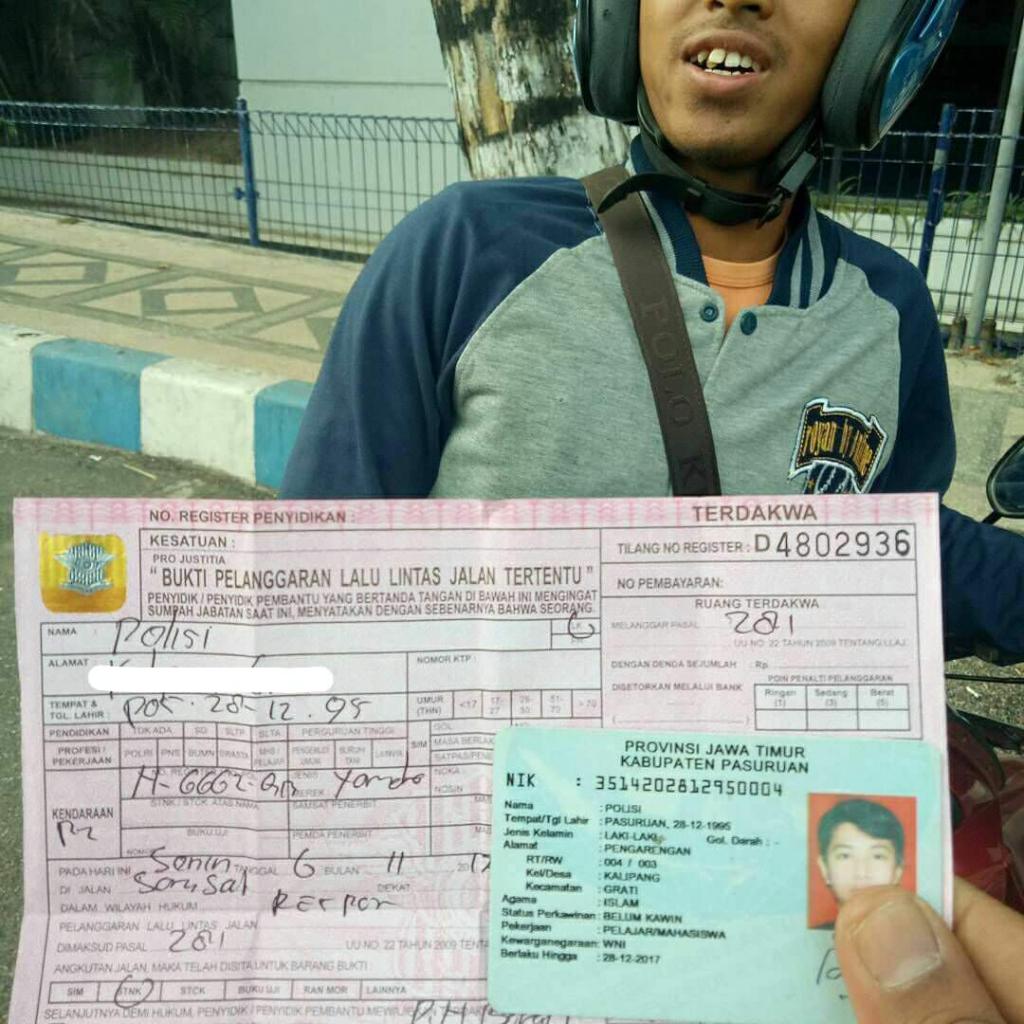 POLO K
NO. REGISTER PENYIDIKAN :
TERDAKWA
KESATUAN :
PRO JUSTITIA
" BUKTI PELANGGARAN LALU LINTAS JALAN TERTENTU "
PENYIDIK / PENYIDIK PEMBANTU YANG BERTANDA TANGAN DI BAWAH INI MENGINGAT
SUMPAH JABATAN SAAT INI, MENYATAKAN DENGAN SEBENARNYA BAHWA SEORANG.
TILANG NO REGISTER : D4802936
NO PEMBAYARAN:
RUANG TERDAKWA
MELANGGAR PASAL 281
UU NO. 22 TAHUN 2009 TENTANG LLAJ
DENGAN DENDA SEJUMLAH : Rp
DISETORKAN MELALUI BANK
POIN PENALTI PELANGGARAN
Ringan (1) Sedang (3) Berat (5)
NAMA : Polisi LK
ALAMAT
NOMOR KTP :
TEMPAT & TGL. LAHIR : Pas. 28-12.95
UMUR (THN) <17 17-27 51-70 >70
PENDIDIKAN TDK ADA SD SLTP SLTA PERGURUAN TINGGI
PROFESI / PEKERJAAN POLRI PNS BUMN SWASTA
SIM GOL.
MASA BERLAKU
KENDARAAN
STNK / STCK ATAS NAMA
SAMSAT PENERBIT
NOKA :
NOSIN
BUKU UJI
PEMDA PENERBIT
PADA HARI INI Senin TANGGAL 6 BULAN 11 2017
DI JALAN
DEKAT
DALAM WILAYAH HUKUM
PELANGGARAN LALU LINTAS JALAN
DIMAKSUD PASAL 281 UU NO. 22 TAHUN 2009 TENTA
ANGKUTAN JALAN, MAKA TELAH DISITA UNTUK BARANG BUKTI :
SIM STNK STCK BUKU UJI RAN MOR LAINNYA
SELANJUTNYA DEMI HUKUM, PENYIDIK / PENYIDIK PEMBANTU
PROVINSI JAWA TIMUR
KABUPATEN PASURUAN
NIK : 3514202812950004
Nama : POLISI
Tempat/Tgl Lahir : PASURUAN, 28-12-1995
Jenis Kelamin : LAKI-LAKI Gol. Darah : -
Alamat : PENGARENGAN
RT/RW : 004 / 003
Kel/Desa : KALIPANG
Kecamatan : GRATI
Agama : ISLAM
Status Perkawinan: BELUM KAWIN
Pekerjaan : PELAJAR/MAHASISWA
Kewarganegaraan: WNI
Berlaku Hingga : 28-12-2017